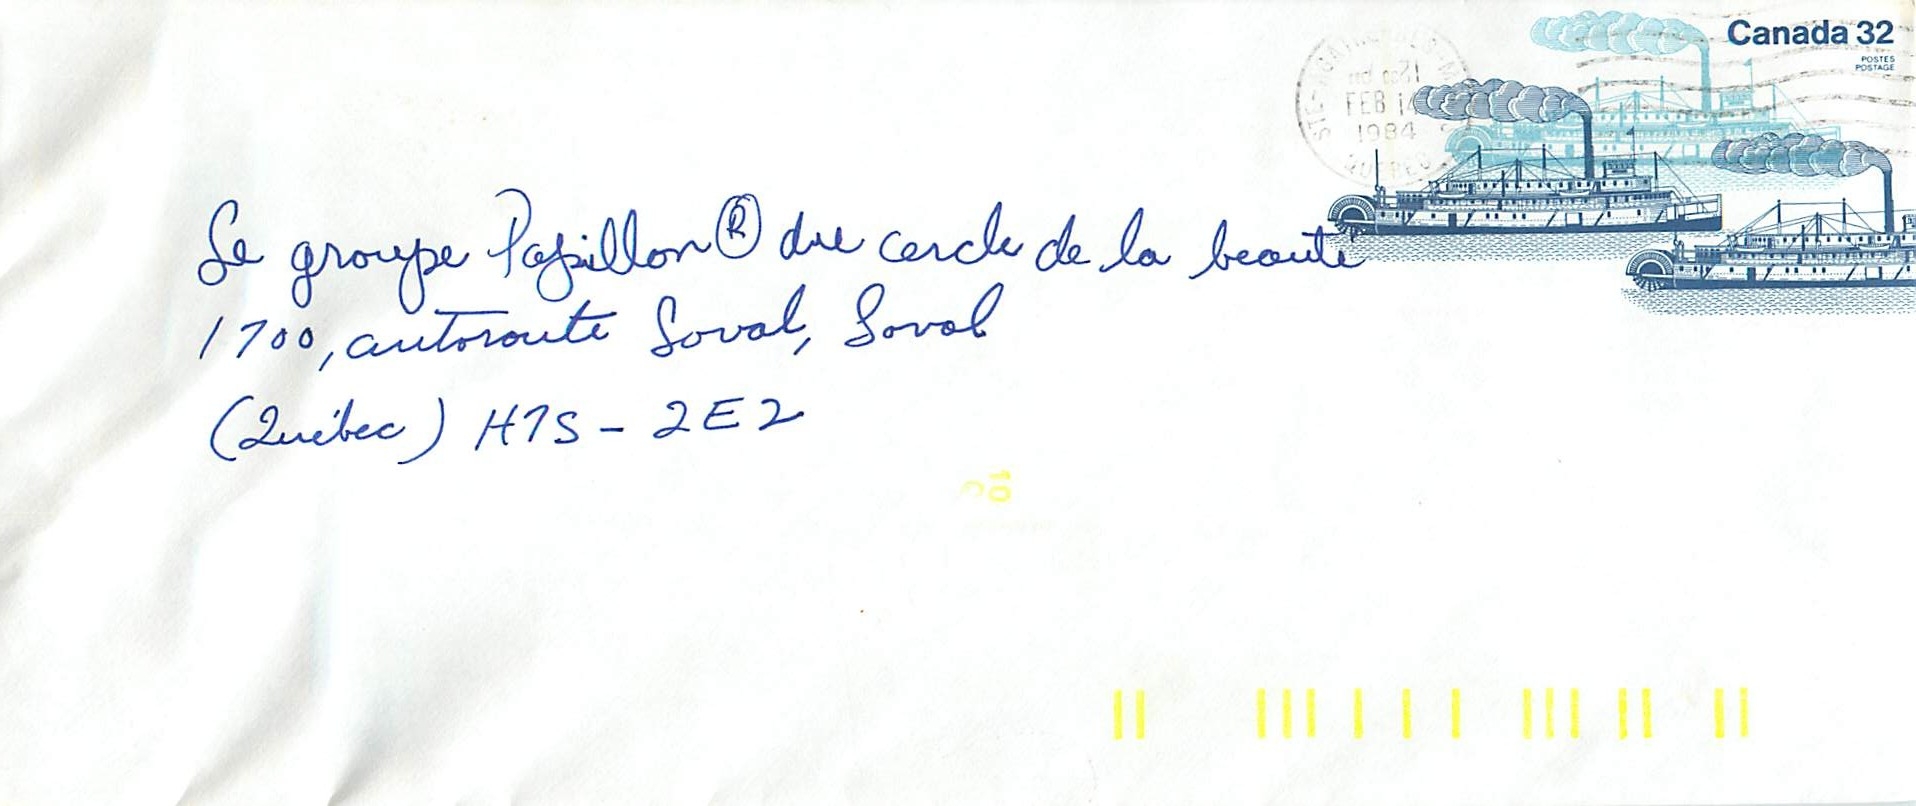 Canada 32
POSTES
POSTAGE
FEB 14
1984
QUEBEC
Le groupe Papillon® du cercle de la beauté
1700, autoroute Laval, Laval
(Québec) H7S - 2E2
10